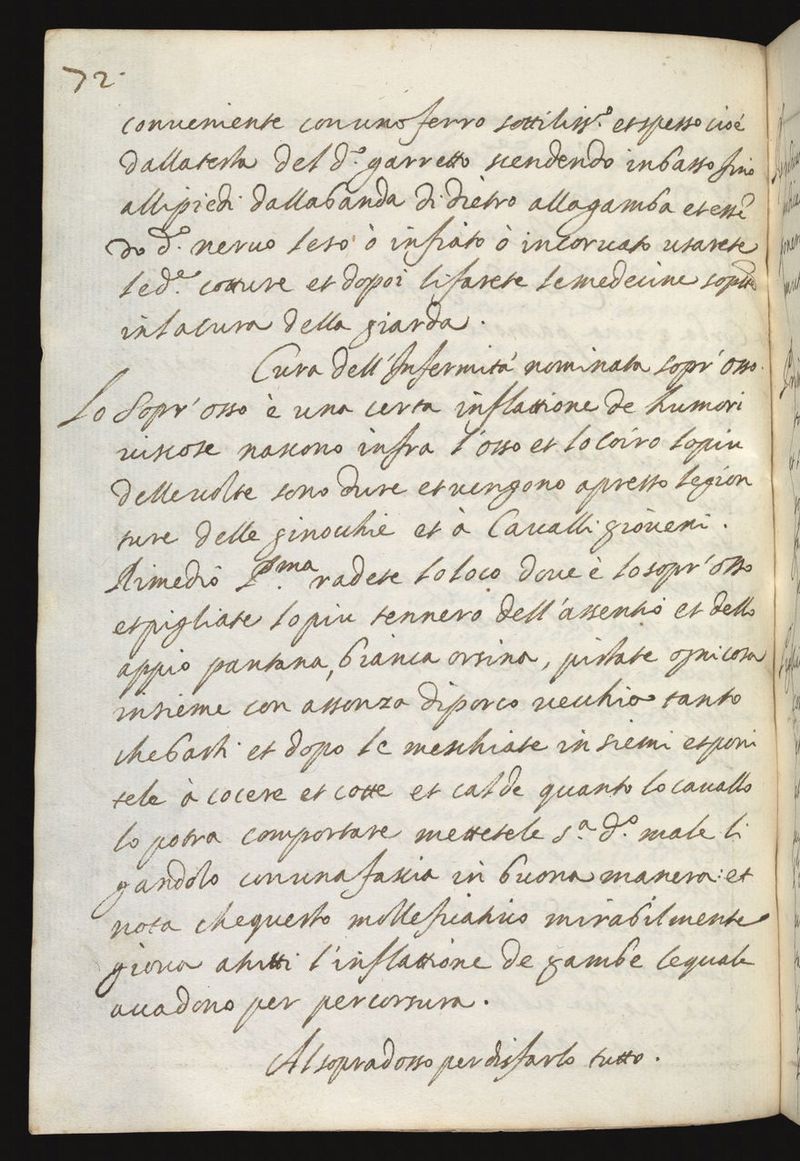 72.
conueniente con uno ferro sottiliss.º et spesso cioè
dalla testa del d.º garretto scendendo in basso fino
alli piedi dalla banda di dietro alla gamba et essē
do d.º neruo leso ò infiato ò incoruato usarete
le d.e cotture et dopoi li farete le medecine sop.te
in la cura della giarda.
Cura dell'Infermità nominata sopr'osso.
Lo Sopr'osso è una certa inflattione de humori
uiscose nascono infra l'osso et lo coiro lo piu
delle uolte sono dure et uengono apresso le gion
ture delle ginocchie et à Caualli gioueni.
Rimedio P.ma radete lo loco doue è lo sopr'osso
et pigliate lo piu tennero dell'assentio et dello
appio pantana, bianca orsina, pistate ogni cosa
insieme con assonza di porco uecchio tanto
che basti et dopo le meschiate insiemi et poni
tele à cocere et cotte et calde quanto lo cauallo
lo potra comportare mettetele s.a d.º male li
gandolo con una fascia in buona manera: et
nota che questo mollificatiuo mirabilmente
gioua a tutti l'inflattione de gambe le quale
accadono per percossura.
Al sopradosso per disfarlo tutto.